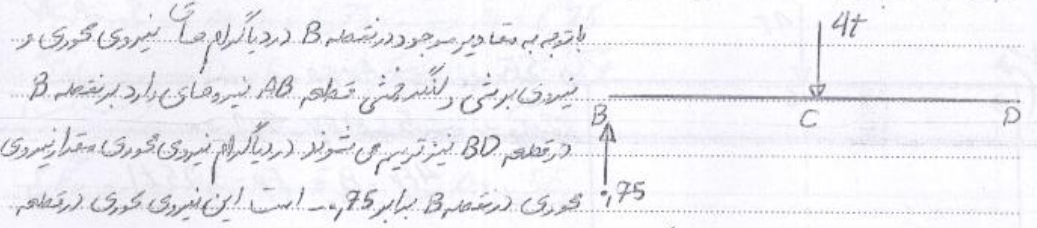 باتوجه به مقادیر موجود در نقطه B در دیاگرام های نیروی محوری و
نیروی برشی و لنگر خمشی قطعه AB نیروهای وارد بر نقطه B
در قطعه BD نیز ترسیم می شوند در دیاگرام نیروی محوری مقدار نیروی
محوری در نقطه B برابر -0,75 است این نیروی محوری در قطعه
4t
B C D
0,75